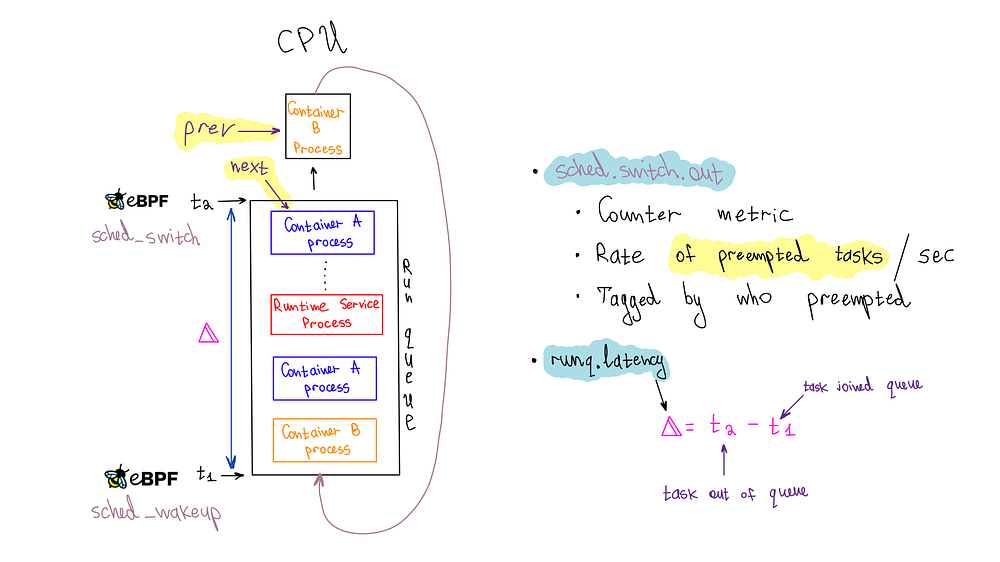 CPU
Container
B
Process
prev
next
eBPF t2
sched_switch
Container A
process
Runtime Service
Process
Container A
process
Container B
process
Run queue
Δ
eBPF t1
sched_wakeup
• sched.switch.out
• Counter metric
• Rate of preempted tasks / sec
• Tagged by who preempted
• runq.latency
task joined queue
Δ = t2 - t1
task out of queue